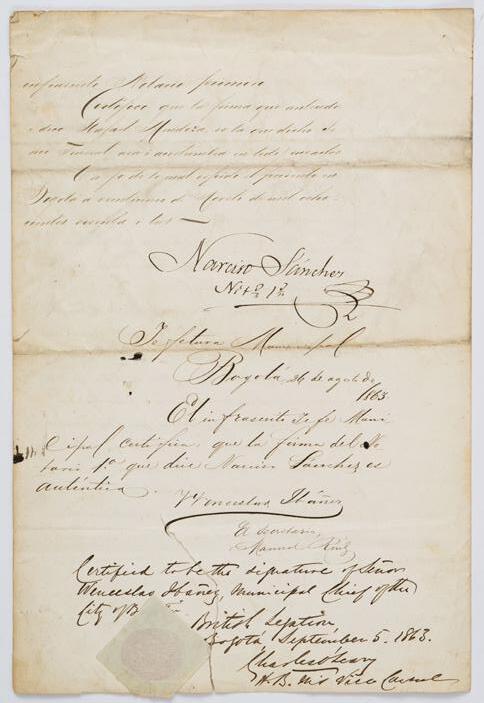 infrascrito Notario primero
Certifico que la firma que antecede
i dice Rafael Mendoza, es la que dicho Se
acostumbra en todos
En fe de lo cual expido el presente en
Bogotá a veintiseis de Agosto de mil ocho
cientos sesenta i tres —
Narciso Sánchez
Notº 1º
Jefetura Municipal
Bogotá, 26 de agosto de
1863
El infrascrito Jefe Muni
cipal certifica que la firma del No
tario 1º que dice Narciso Sanchez es
auténtica
Wenceslao Ibáñez
El Secretario,
Manuel Ruiz
Certified to be the signature of Señor
Wenceslao Ibañez, Municipal Chief of the
City of B
British Legation
Bogotá September 5. 1863.
Charles O'Leary
H.B.M's Vice Consul